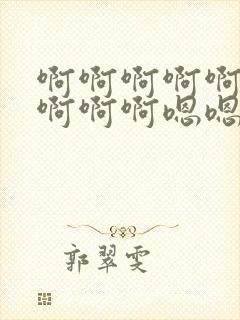 啊啊啊啊啊
啊啊啊嗯嗯
郭翠雯